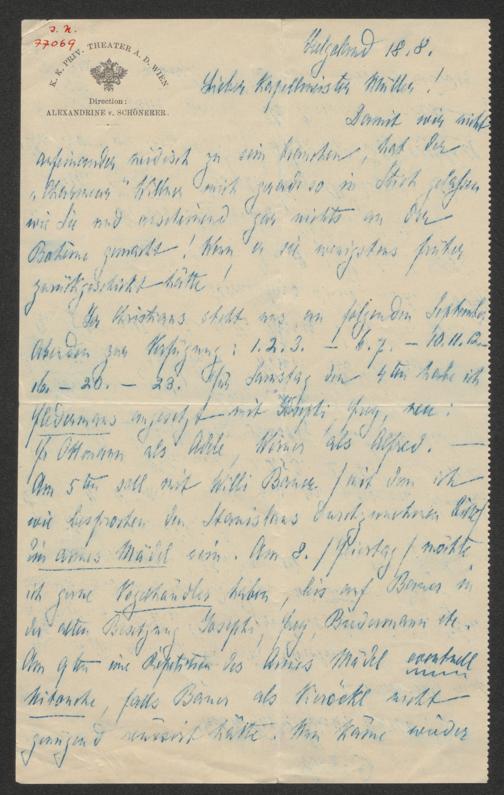 I. N.
77069
K. K. PRIV. THEATER A. D. WIEN
Direction:
ALEXANDRINE v. SCHÖNERER.
Helgoland 18. 8.
Lieber Kapellmeister Müller!
Damit wir nicht
aufeinander neidisch zu sein brauchen, hat der
„Charmeur“ Willner mich gerade so in Stich gelassen
wie Sie und anscheinend gar nichts an der
Bohème gemacht! Wenn er sie wenigstens früher
zurückgeschickt hätte!
Der Christians steht uns an folgenden September
Abenden zur Verfügung: 1. 2. 3. – 6. 7. – 10. 11. 12. –
16. – 20. – 23. Für Samstag den 4ten habe ich
Fledermaus angesetzt mit Josephi Frey, neu:
Fr Ottmann als Adele, Werner als Alfred. —
Am 5ten soll mit Willi Bauer / mit dem ich
wie besprochen den Stanislaus durchzunehmen bitte /
Ein armes Mädel sein. Am 8. / Feiertag / möchte
ich gerne Vogelhändler haben, bis auf Bauer in
der alten Besetzung Josephi, Frey, Biedermann etc.
Am 9ten eine Repetition des Armes Mädel eventuell
Nitouche, falls Bauer als nicht
genügend reussirt hätte. Nun käme wieder